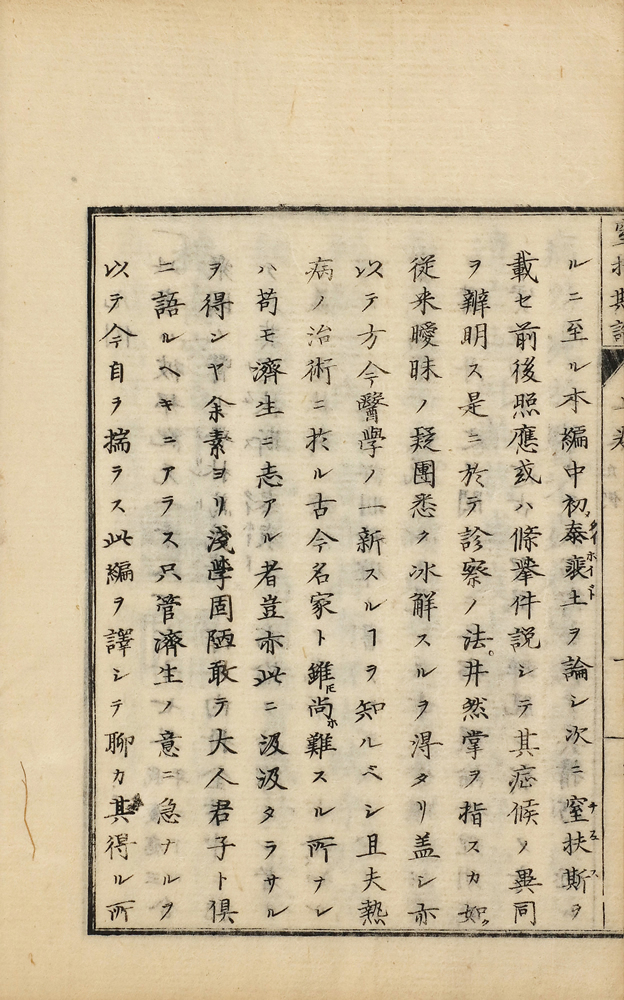 窒扶斯
上
ルニ至ル本編中初泰裵土ヲ論シ次ニ窒扶斯ヲ
載セ前後照應或ハ條擧件説シテ其症候ノ異同
ヲ辨明ス是ニ於テ診察ノ法井然掌ヲ指スカ如
從来曖昧ノ疑團悉ク氷解スルヲ得タリ盖シ亦
以テ方今醫學ノ一新スルヿヲ知ルベシ且夫熱
病ノ治術ニ於ル古今名家ト雖𪜈尚ホ難スル所ナレ
ハ苟モ濟生ニ志アル者豈亦此ニ汲汲タラサル
ヲ得ンヤ余素ヨリ淺學固陋敢テ大人君子ト倶
ニ語ルヘキニアラス只管濟生ノ意ニ急ナルヲ
以テ今自ヲ揣ラス此編ヲ譯シテ聊カ其得ル所